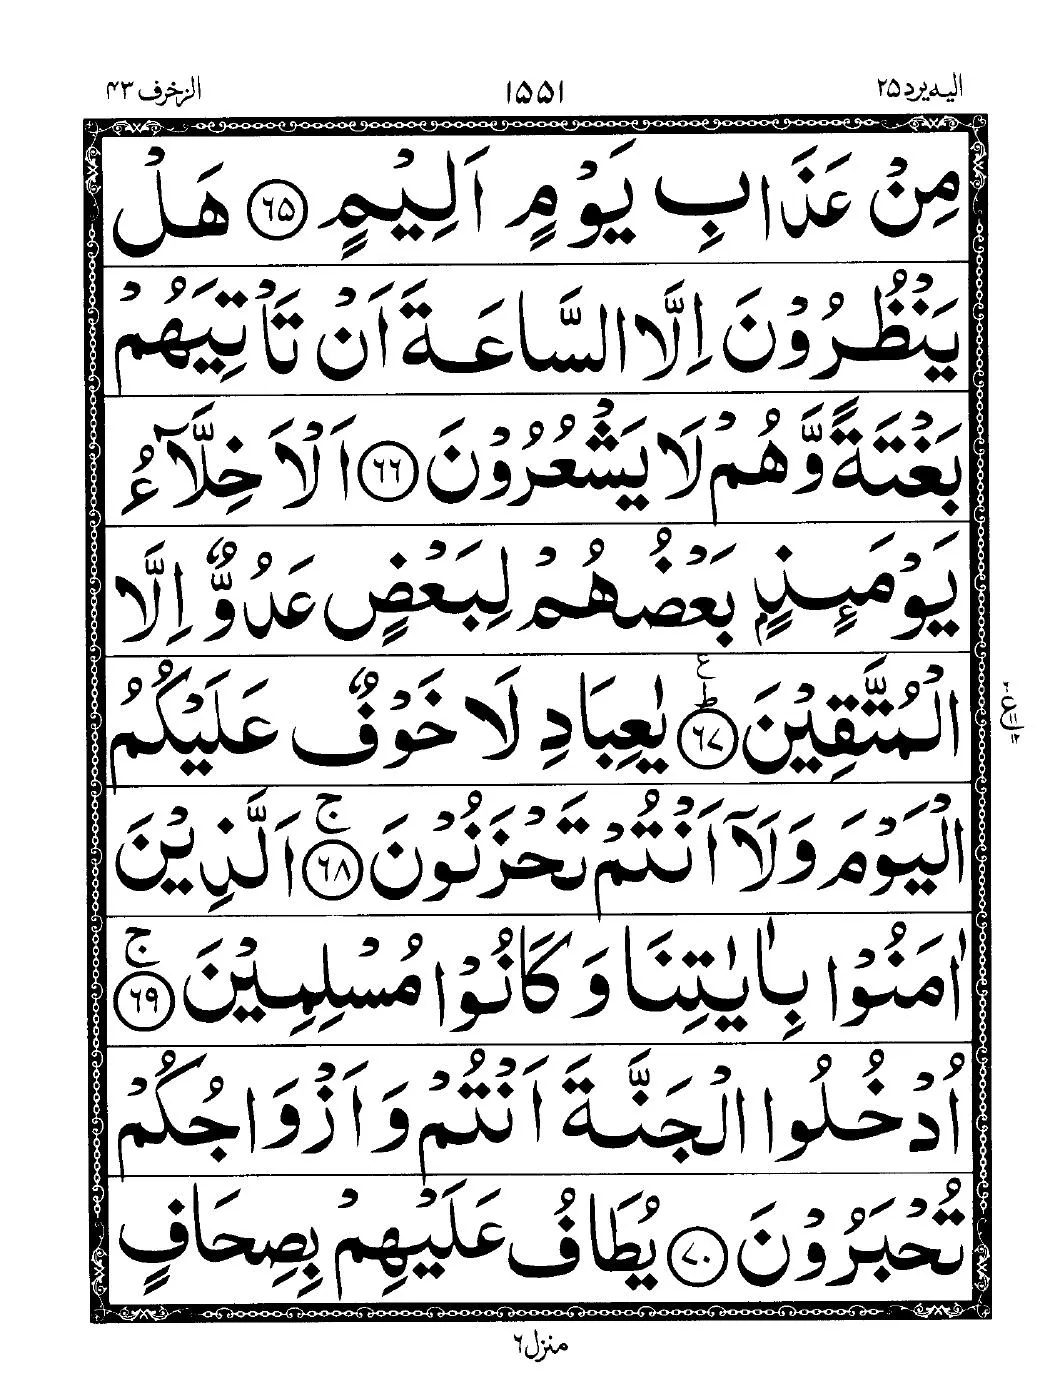 الیه یرد ۲۵ ۱۵۵۱ الزخرف ۴۳
مِنْ عَذَابِ یَوْمٍ اَلِیْمٍ ﴿۶۵﴾ هَلْ
یَنْظُرُوْنَ اِلَّا السَّاعَةَ اَنْ تَاْتِیَهُمْ
بَغْتَةً وَّهُمْ لَا یَشْعُرُوْنَ ﴿۶۶﴾ اَلْاَخِلَّآءُ
یَوْمَىِٕذٍۭ بَعْضُهُمْ لِبَعْضٍ عَدُوٌّ اِلَّا
الْمُتَّقِیْنَ ﴿۶۷﴾ؕ ع یٰعِبَادِ لَا خَوْفٌ عَلَیْكُمُ
الْیَوْمَ وَلَاۤ اَنْتُمْ تَحْزَنُوْنَ ﴿۶۸﴾ۚ اَلَّذِیْنَ
اٰمَنُوْا بِاٰیٰتِنَا وَكَانُوْا مُسْلِمِیْنَ ﴿۶۹﴾ۚ
اُدْخُلُوا الْجَنَّةَ اَنْتُمْ وَاَزْوَاجُكُمْ
تُحْبَرُوْنَ ﴿۷۰﴾ یُطَافُ عَلَیْهِمْ بِصِحَافٍ
منزل ۶
ع
۱۱
۱۲